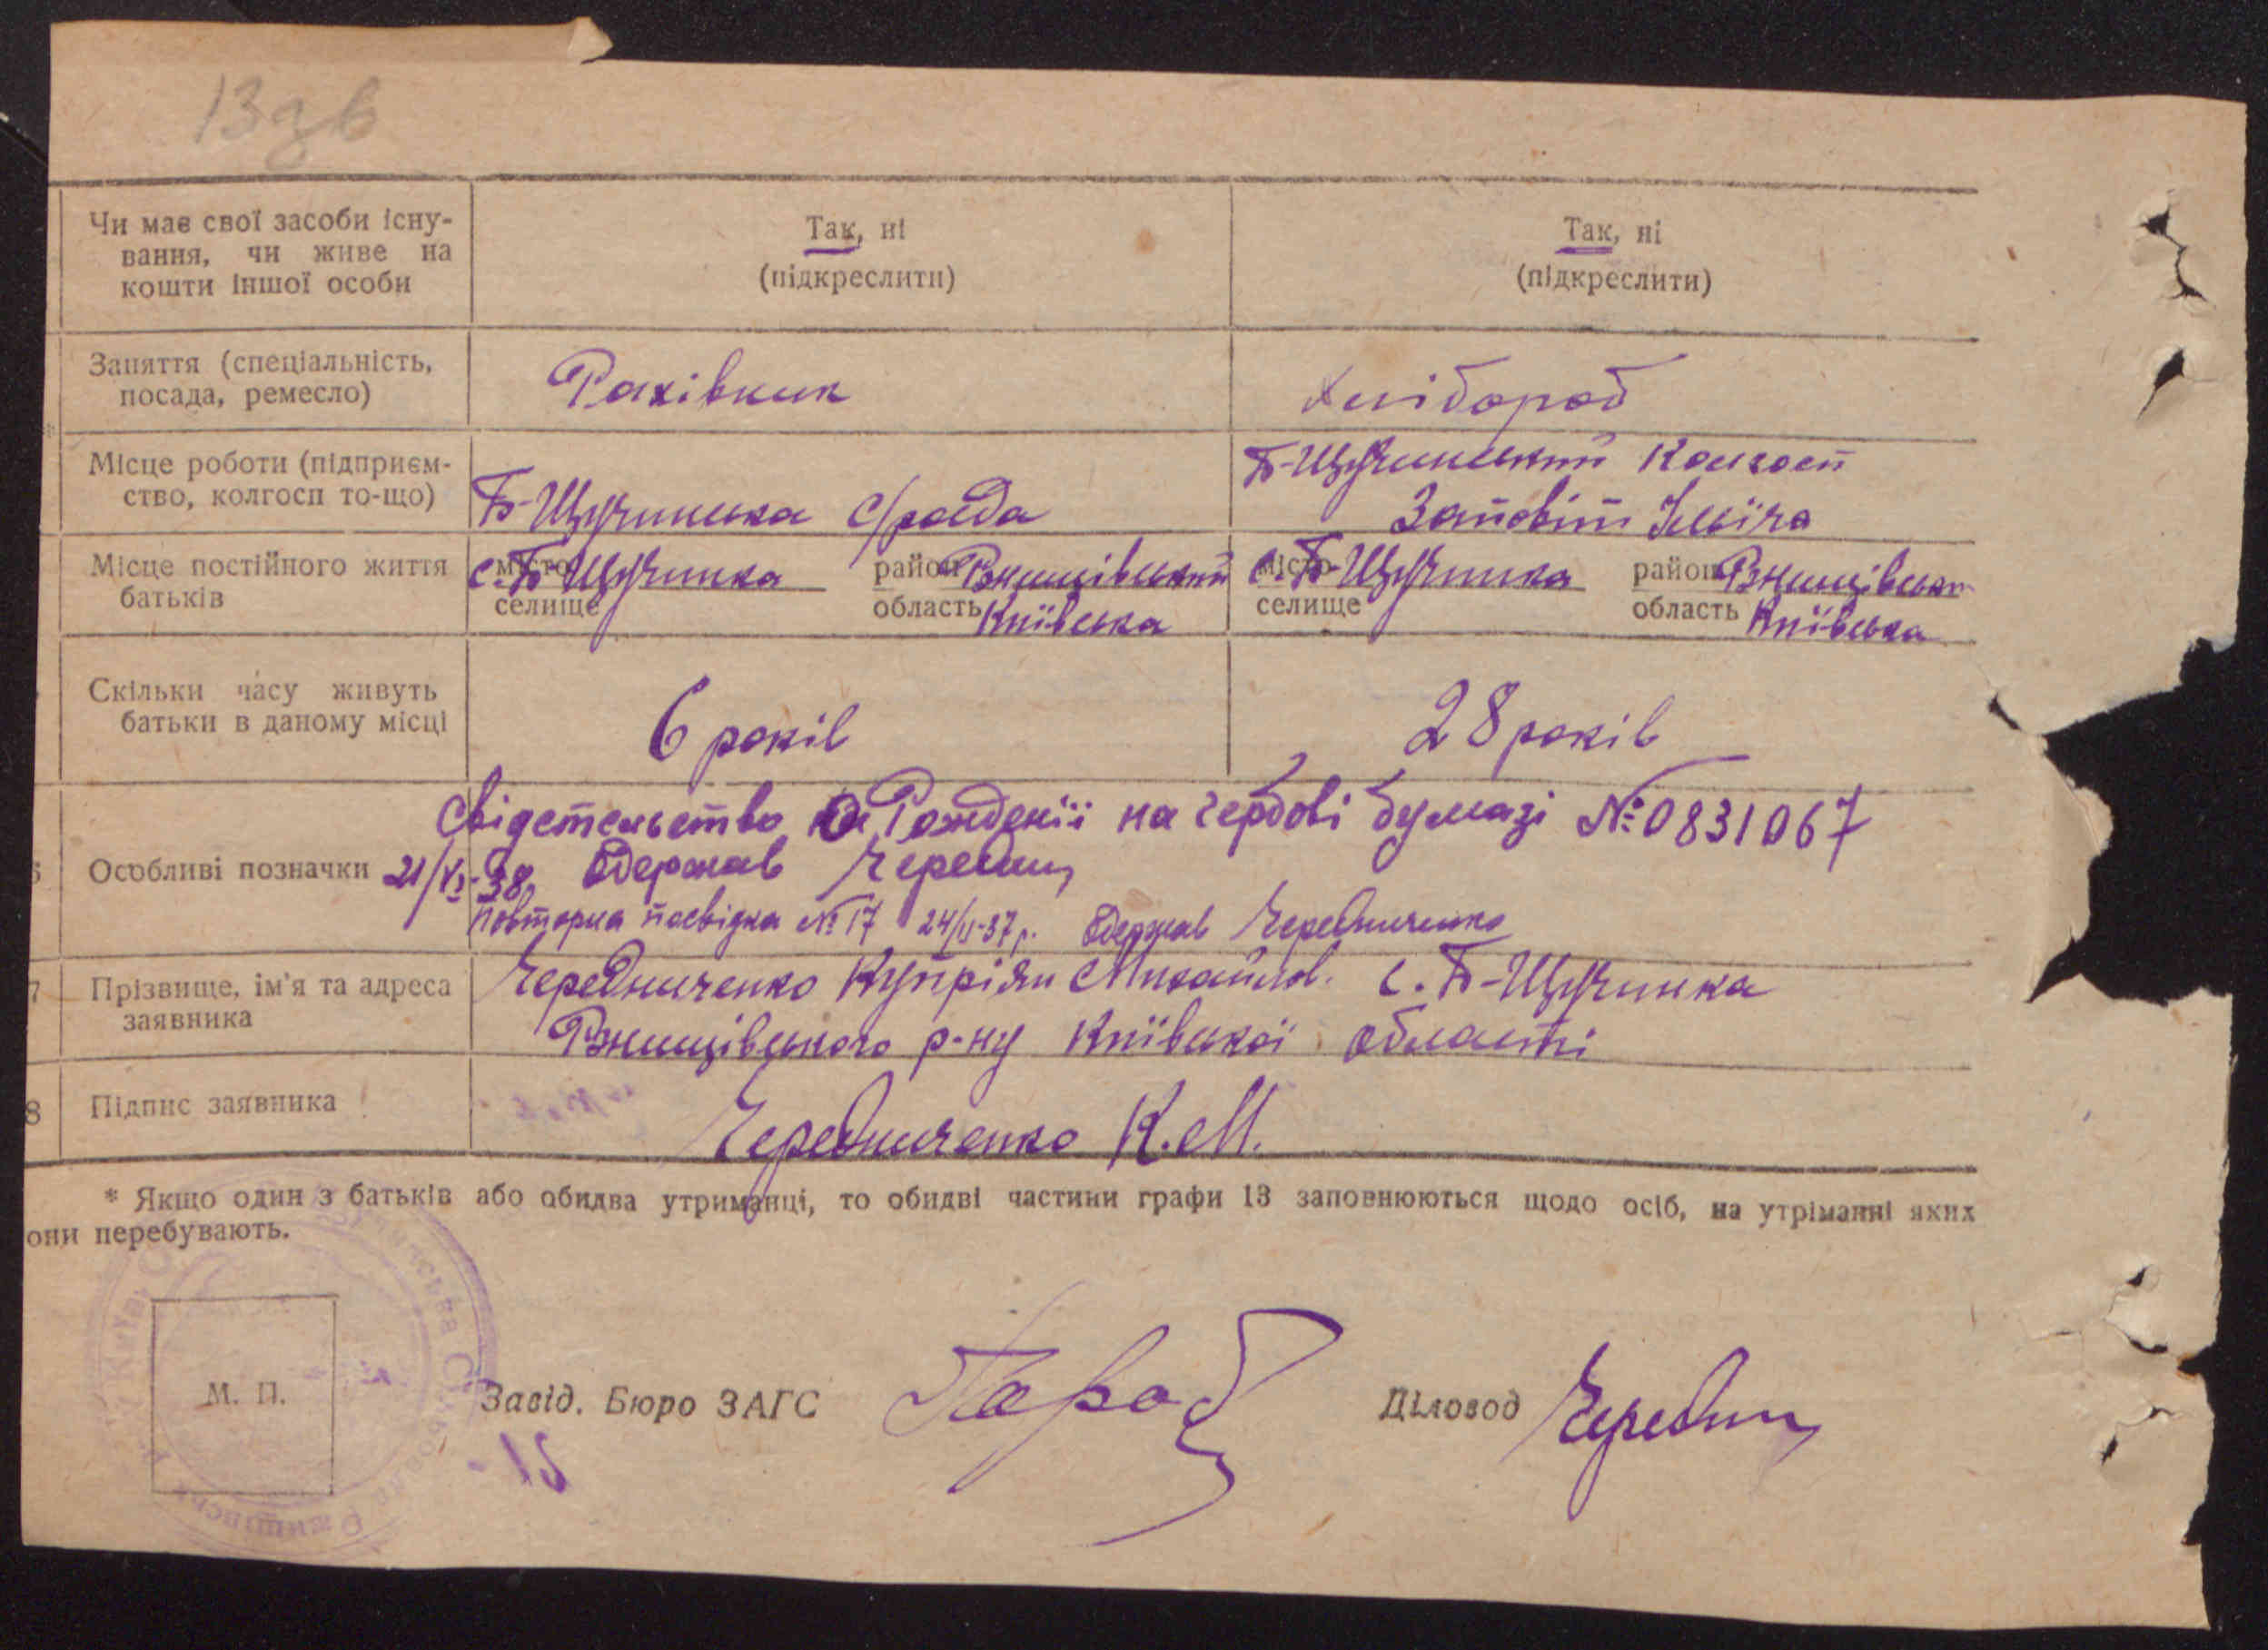 13 зв
Чи має свої засоби існу-
вання, чи живе на
кошти іншої особи
Так, ні
(підкреслити)
Так, ні
(підкреслити)
Заняття (спеціальність,
посада, ремесло)
Рахівник
Хлібороб
Місце роботи (підприєм-
ство, колгосп то-що)
Б-Щучинська с/рада
Б-Щучинський колгосп
Заповіт Ілліча
Місце постійного життя
батьків
місто
с. Б-Щучинка
селище
район Ржищівський
область Київська
місто
с. Б-Щучинка
селище
район Ржищівськ
область Київська
Скільки часу живуть
батьки в даному місці
6 років
28 років
Свідетельство о Рожденії на гербові бумазі № 0831067
6
Особливі позначки
21/VI-38. Одержав Чередн
Повторна посвідка № 17 24/VI-37 р. Одержав Чередниченко
7
Прізвище, ім'я та адреса
заявника
Чередниченко Купріян Михайлов. с. Б-Щучинка
Ржищівського р-ну Київської області
8
Підпис заявника
Чередниченко К. М.
* Якщо один з батьків або обидва утриманці, то обидві частини графи 13 заповнюються щодо осіб, на утріманні яких
они перебувають.
М. П.
Завід. Бюро ЗАГС
Діловод Чередн
15